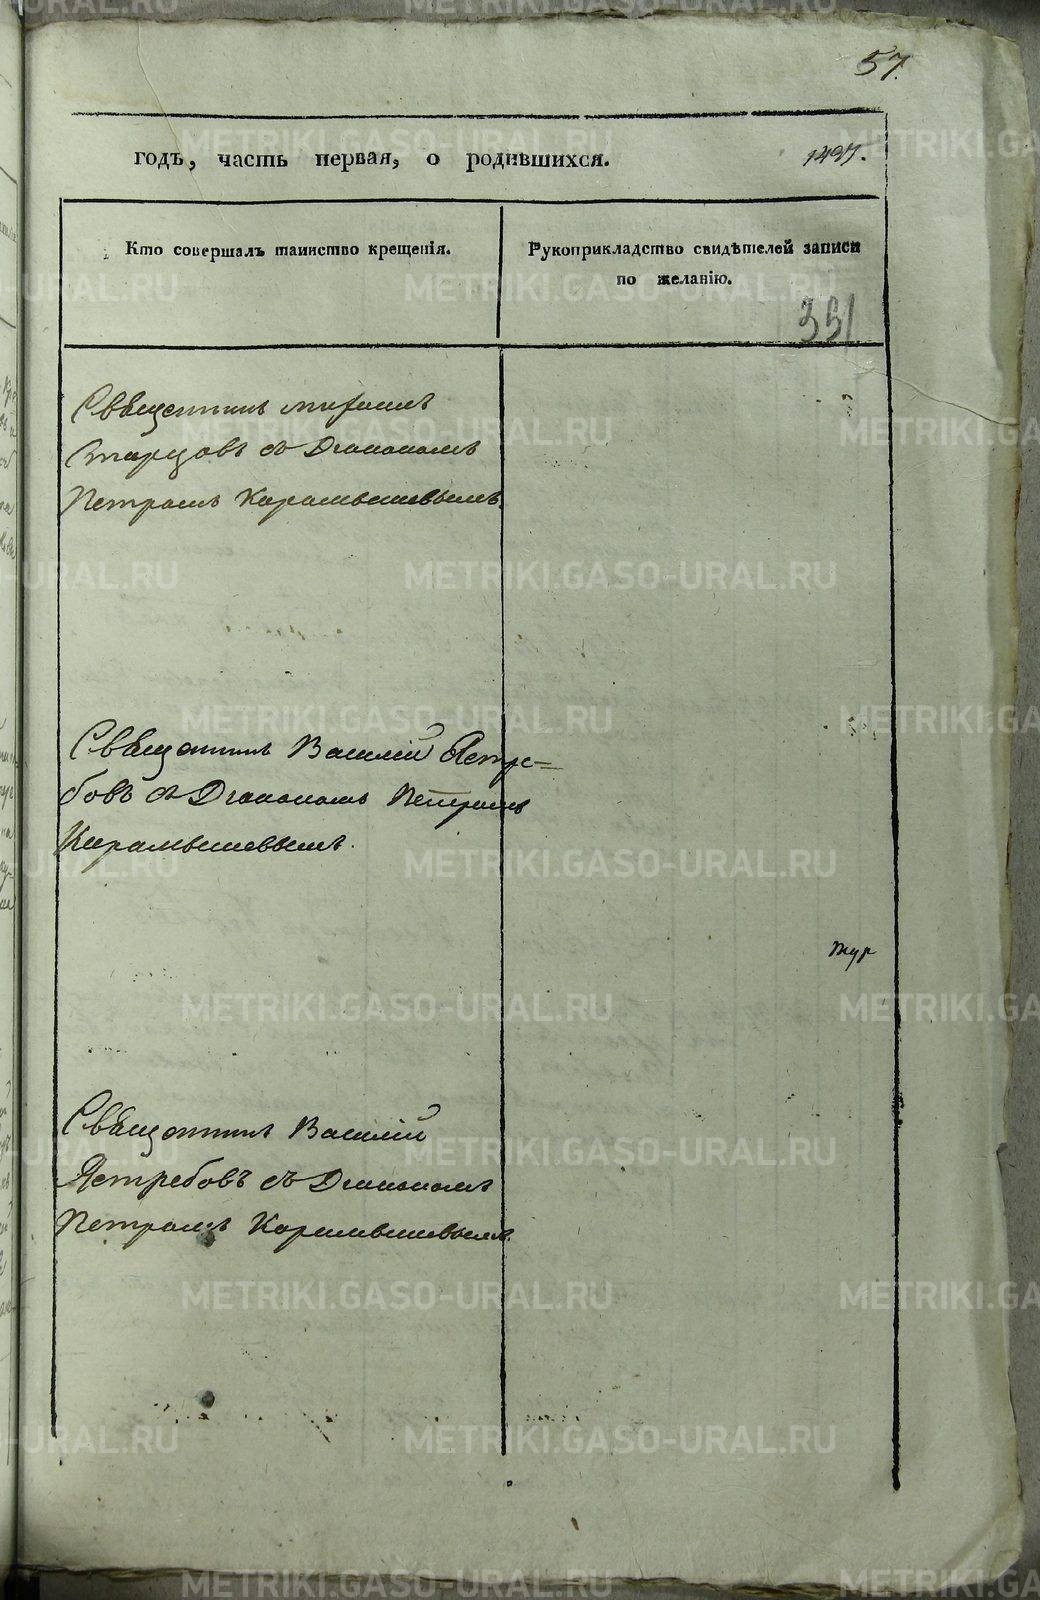 57.
годъ, часть первая, о родившихся.
1497.
Кто совершалъ таинство крещенія.
Рукоприкладство свидѣтелей записи
по желанію.
331
Свѣщенникъ
Старцовъ съ Діакономъ
Петромъ Карамышевымъ.
Свѣщенникъ Василій Ястре=
бовъ съ Діакономъ Петромъ
Карамышевымъ.
Свѣщенникъ Василій
Ястребовъ съ Діакономъ
Петромъ Карамышевымъ.
METRIKI.GASO-URAL.RU